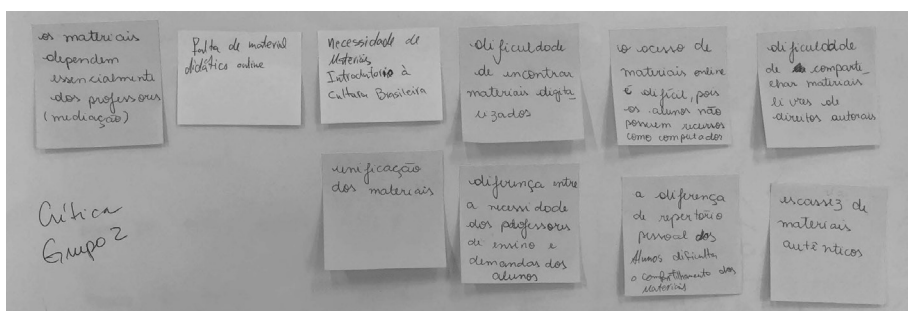 os materiais
dependem
essencialmente
dos professores
(mediação)
Falta de material
didático online
Necessidade de
Materiais
Introdutório à
Cultura Brasileira
dificuldade
de encontrar
materiais digita
lizados
o acesso de
materiais online
é difícil, pois
os alunos não
possuem recursos
como computador
dificuldade
de comparti_
lhar materiais
livres de
direitos autorais
unificação
dos materiais
diferença entre
a necessidade
dos professores
de ensino e
demandas dos
alunos
a diferença
de repertório
pessoal dos
Alunos dificulta
o compartilhamento dos
Materiais
escassez de
materiais
autênticos
Crítica
Grupo 2